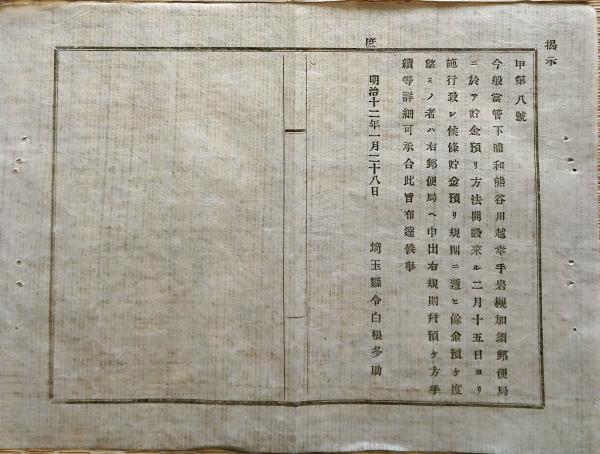 掲示
甲第八號
今般當管下浦和熊谷川越幸手岩槻加須郵便局
ニ於テ貯金預リ方法開設來ル二月十五日ヨリ
施行致シ候條貯金預リ規則ニ遵ヒ餘金預ケ度
望ミノ者ハ右郵便局ヘ申出右規則幷預ケ方手
續等詳細可承合此旨布達候事
明治十二年一月二十八日　埼玉縣令白根多助
庶